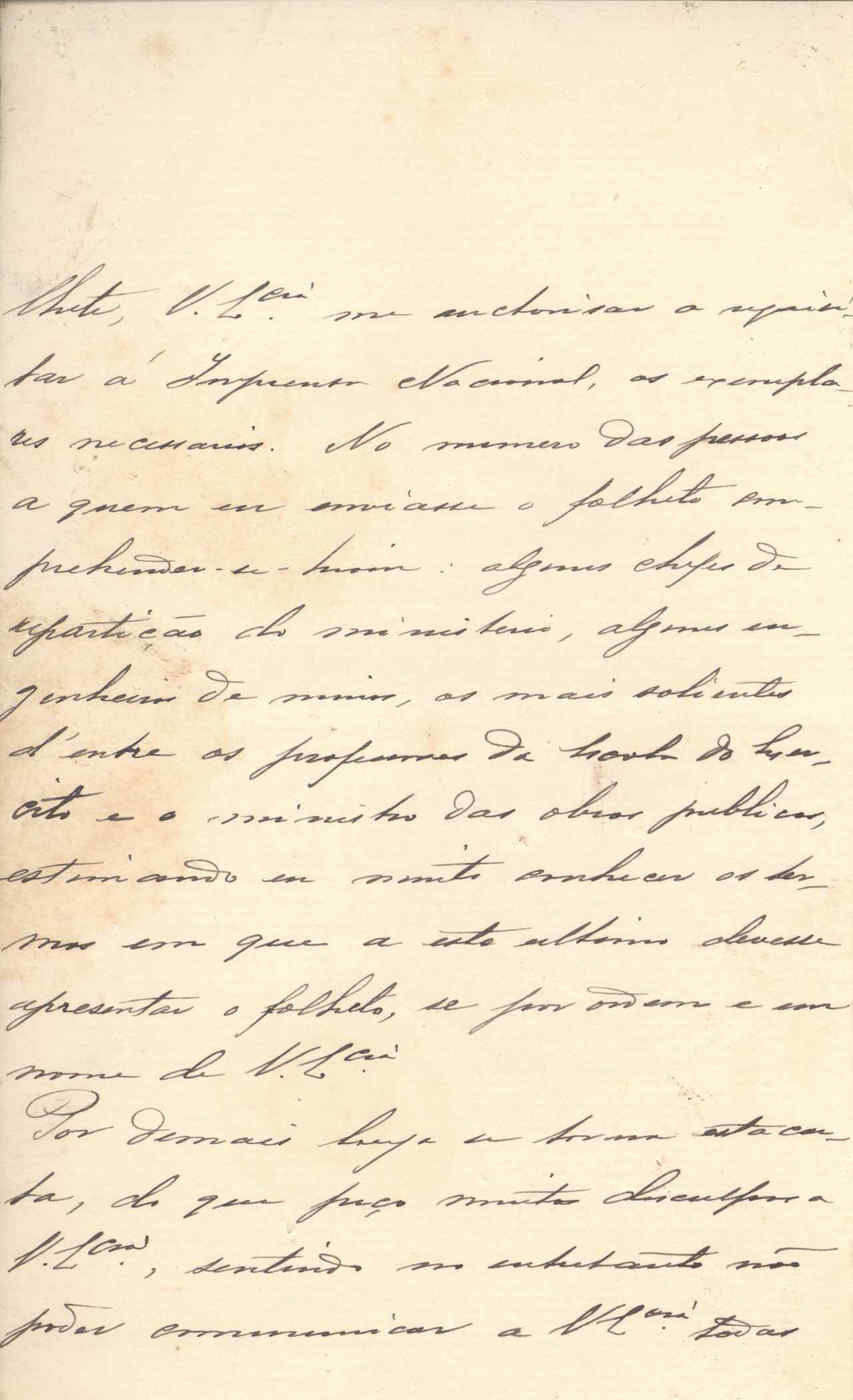 lheto, V. Ex.cia me auctorisar a requisi-
tar á Imprensa Nacional, os exempla-
res necessarios. No numero das pessoas
a quem eu enviasse o folheto com-
prehender-se-hiam: alguns chefes de
repartição do ministerio, alguns en-
genheiros de minas, os mais salientes
d'entre os professores da Escola do Exer-
cito e o ministro das obras publicas,
estimando eu muito conhecer os ter-
mos em que a este ultimo devesse
apresentar o folheto, se por ordem e em
nome de V. Ex.cia
Por demais longa se torna esta car-
ta, do que peço muitas desculpas a
V. Ex.cia, sentindo no entretanto não
poder communicar a V. Ex.cia todas